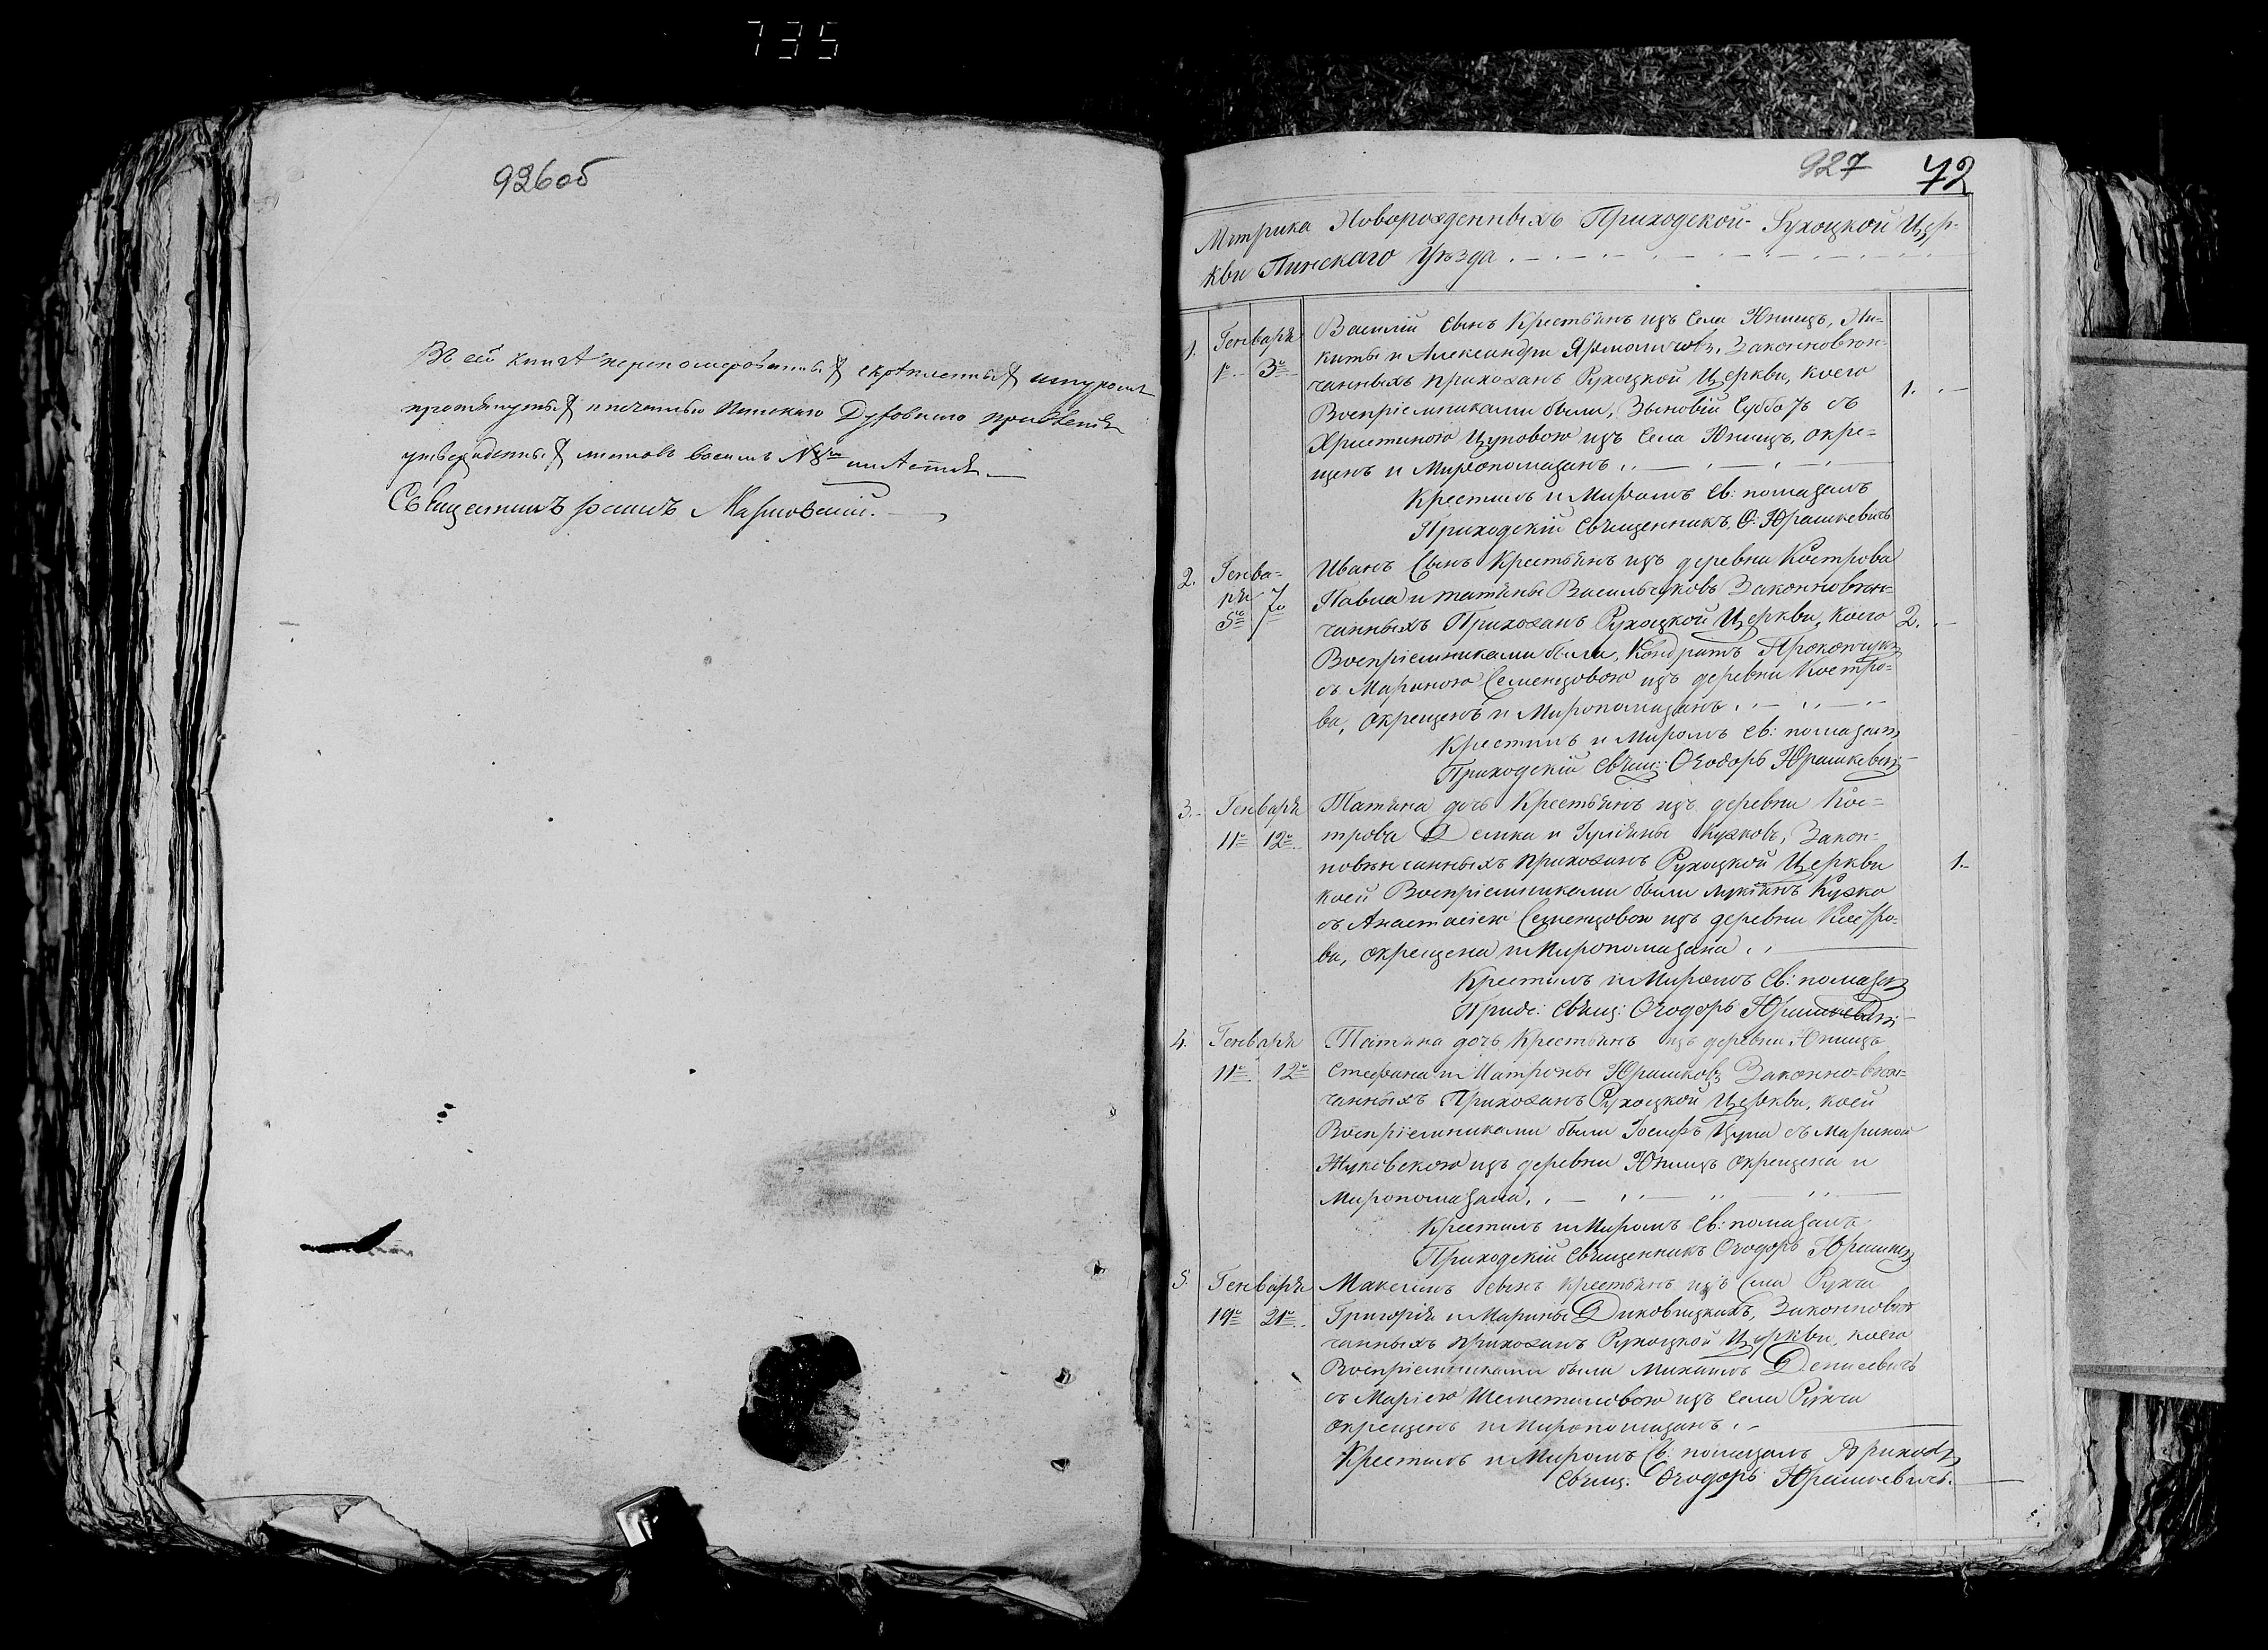 735
926об
Въ сей книгѣ перенумерованныхъ скрѣпленныхъ шнуромъ
протянутыхъ и печатью Пинскаго Духовнаго правленія
утвержденныхъ листовъ восемь №8 имѣется
Священникъ Мариовскій.
927 72
Метрика Новорожденныхъ Приходской Рухоцкой Цер-
кви Пинскаго уѣзда
1. Генваря Василій сынъ Крестьянъ изъ села Юнищъ, Ни-
1го 3го киты и Александры Ярмоличовъ, Законновѣн-
чанныхъ прихожанъ Рухоцкой Церкви, коего 1.
Воспріемниками были, Зѣновій Субботъ съ
Христиною Цуповою изъ села Юнищъ, окре-
щенъ и Миропомазанъ
Крестилъ и Миромъ Св: помазалъ
Приходскій Священникъ Ѳ. Юрашкевичъ
2. Генва- Иванъ Сынъ Крестьянъ изъ деревни Кострова
ря Павла и татіяны Васильчуковъ Законновѣн-
5го 7го чанныхъ Прихожанъ Рухоцкой Церкви, коего 2.
Воспріемниками были, Кондратъ Прокопчукъ
съ Мариною Семенцовою изъ деревни Костро-
ва, окрещенъ и Миропомазанъ
Крестилъ и Миромъ Св: помазалъ
Приходскій Свящ: Ѳеодоръ Юрашкевичъ
3. Генваря Татіяна дочь Крестьянъ изъ деревни Кос-
11го 12го трова Демка и Кужковъ, Закон-
новѣнчанныхъ прихожанъ Рухоцкой Церкви 1.
коей Воспріемниками были Лукіянъ Кужко
съ Анастасіею Семенцовою изъ деревни Костро-
ва, окрещена и Миропомазана
Крестилъ и Миромъ Св: помазалъ
Прихо: Свящ: Ѳеодоръ Юрашкевичъ
4. Генваря Татіяна дочь Крестьянъ изъ деревни Юнищъ
11го 12го Стефана и Матроны Юрашковъ Законно-вѣн-
чанныхъ Прихожанъ Рухоцкой Церкви, коей
Воспріемниками были Іосифъ Цупа съ Мариною
Жуковскою изъ деревни Юнищъ окрещена и
Миропомазана,
Крестилъ и Миромъ Св: помазалъ
Приходскій Священникъ Ѳеодоръ Юрашкевичъ
5. Генваря Максимъ сынъ крестьянъ изъ Села Рухча
19го 21го Григорія и Марины Диковицкихъ, Законновѣн
чанныхъ прихожанъ Рухоцкой Церкви, коего
Воспріемниками были Михаилъ Денисевичъ
съ Маріею Шеметиловою изъ села Рухча
окрещенъ и Миропомазанъ
Крестилъ и Миромъ Св: помазалъ Приход:
Свящ: Ѳеодоръ Юрашкевичъ.